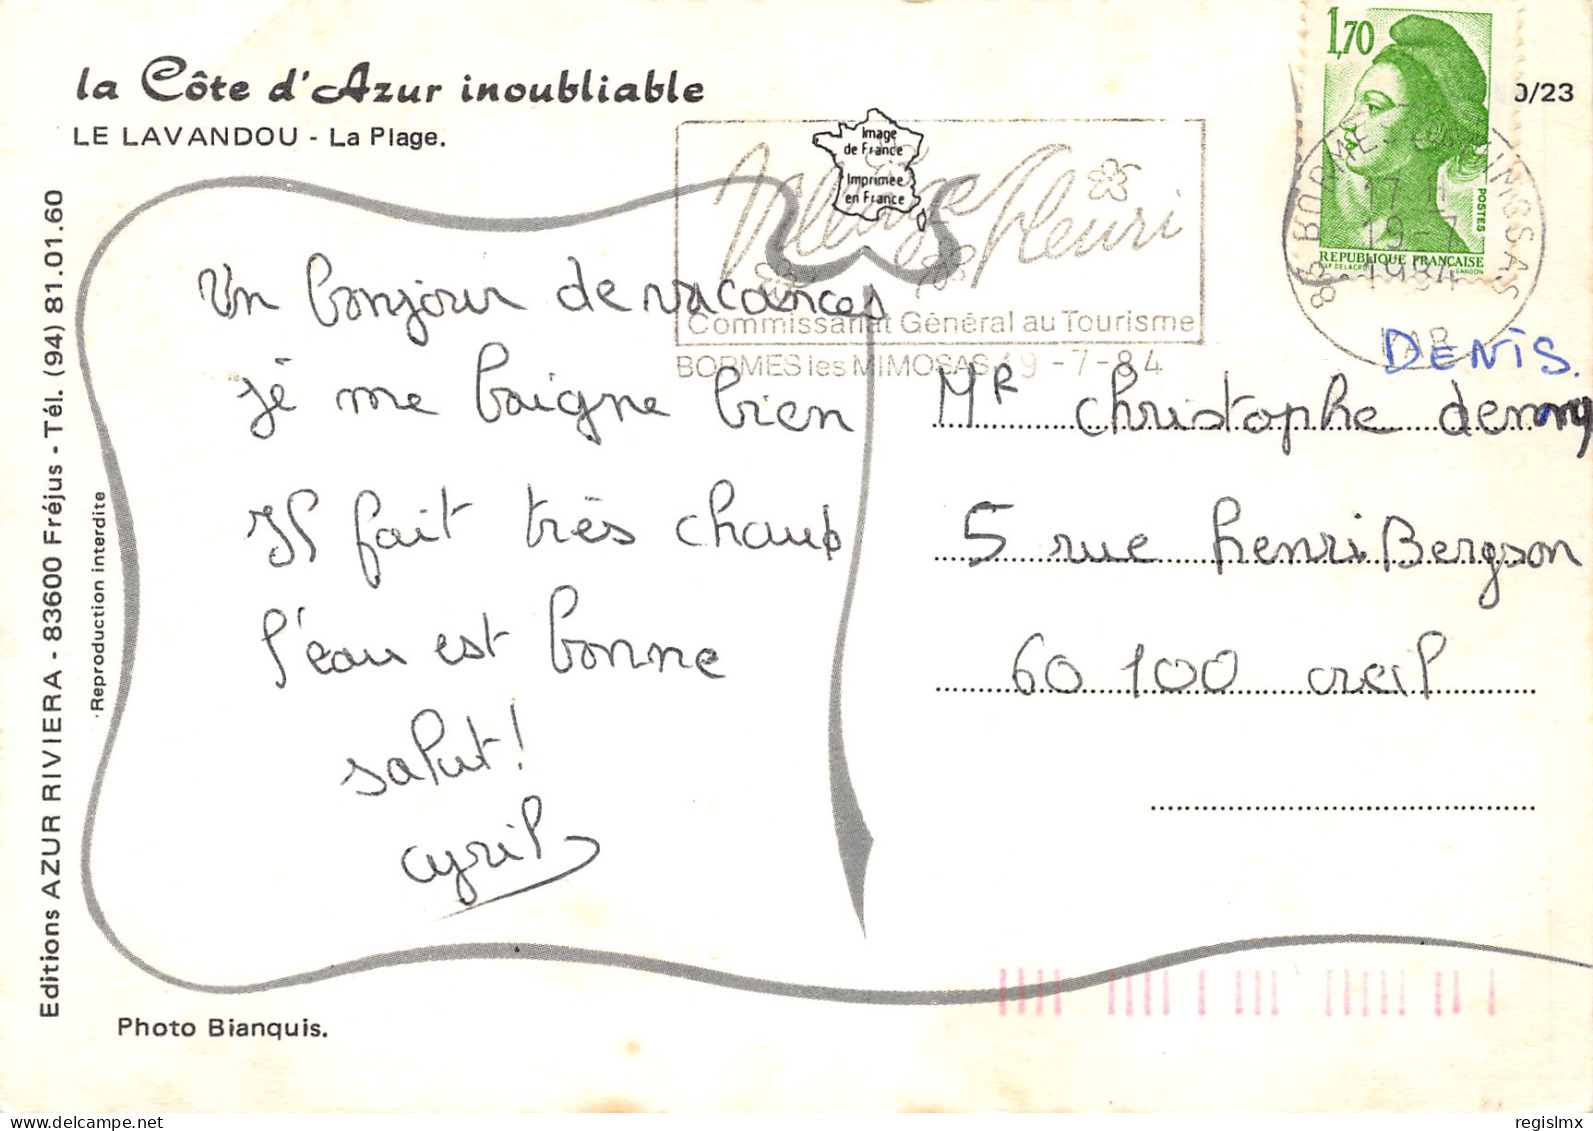 la Côte d'Azur inoubliable
LE LAVANDOU - La Plage.
Image
de France
Imprimée
en France
Village fleuri
Commissariat Général au Tourisme
BORMES les MIMOSAS 19-7-84
1,70
POSTES
REPUBLIQUE FRANÇAISE
GANDON
0/23
83 BORMES-LES-MIMOSAS
17 H
19-7
1984
VAR
Un bonjour de vacances
Je me baigne bien
Il fait très chaud
l'eau est bonne
salut!
cyril
DENIS.
Mr christophe denny
5 rue henri Bergson
60 100 creil
Editions AZUR RIVIERA - 83600 Fréjus - Tél. (94) 81.01.60
Reproduction interdite
Photo Bianquis.
regislmx